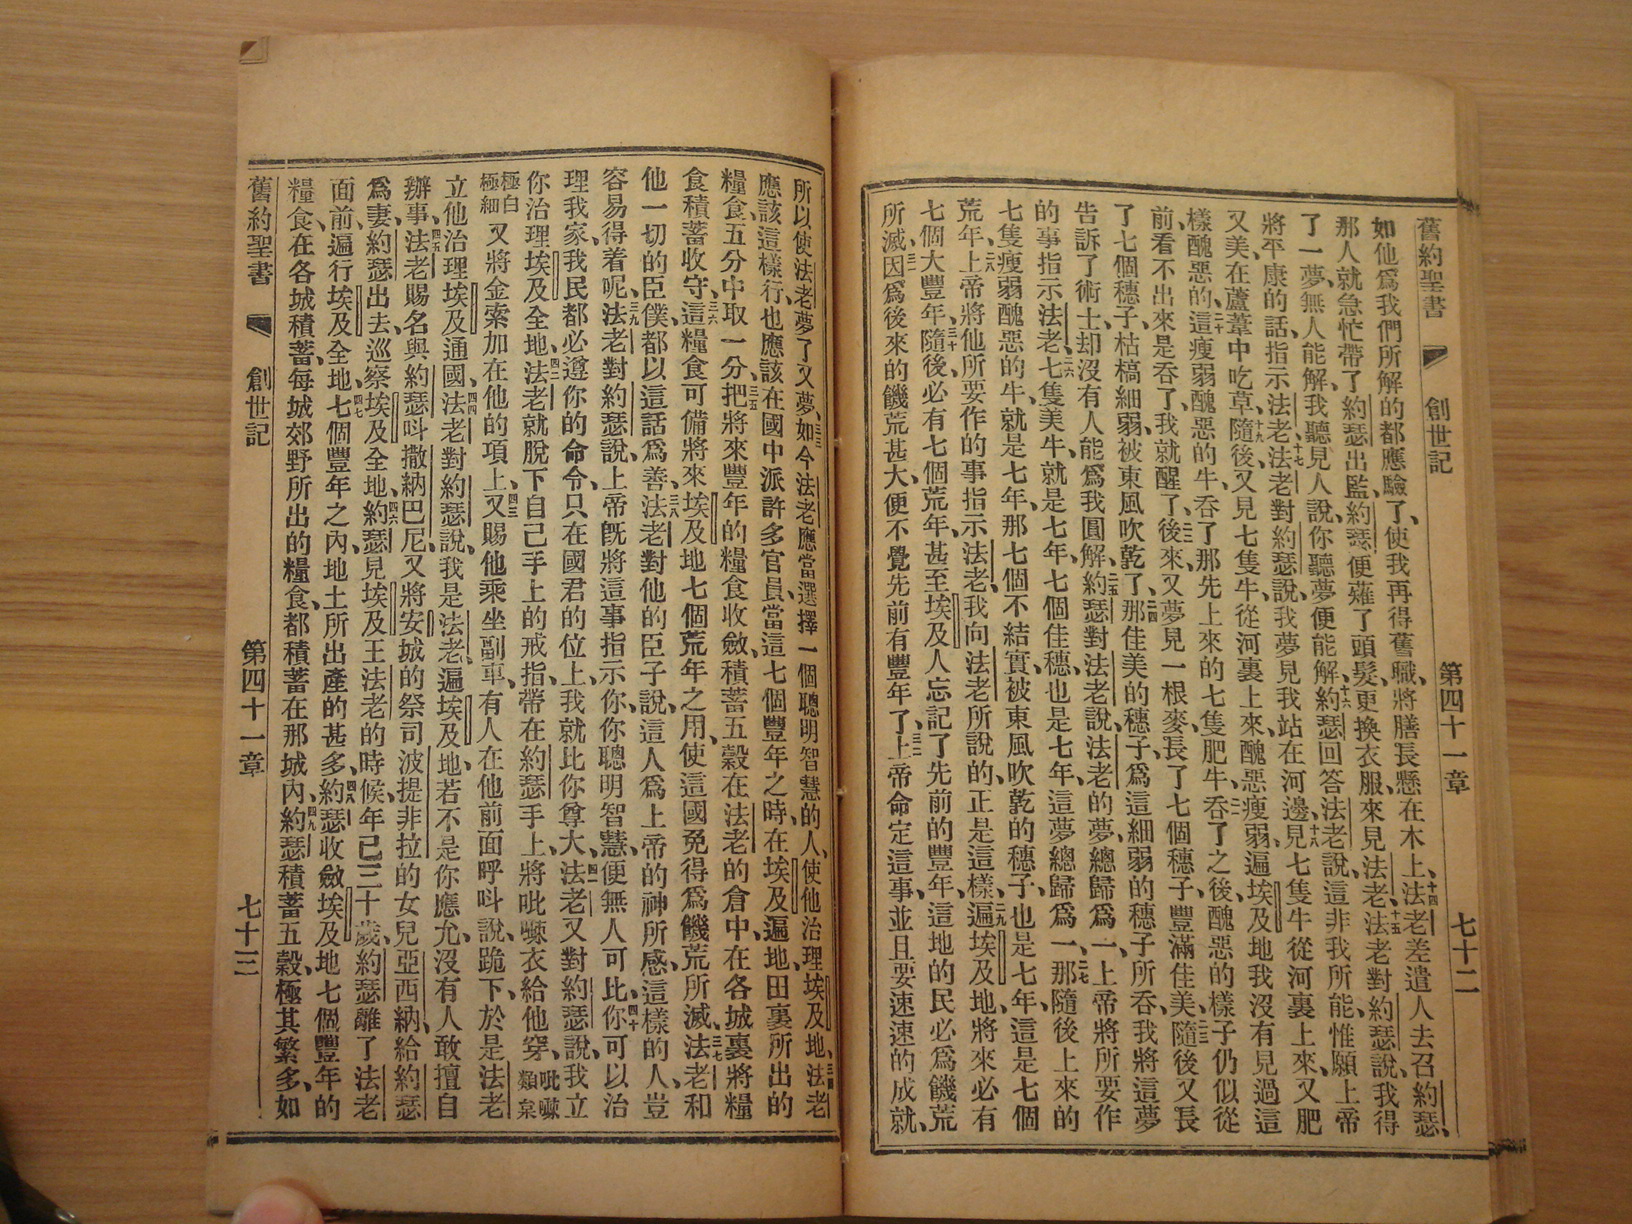 舊約聖書 創世記 第四十一章 七十二
如他爲我們所解的都應驗了、使我再得舊職、將膳長懸在木上、十四法老差遣人去召約瑟、
那人就急忙帶了約瑟出監、約瑟便薙了頭髮、更換衣服、來見法老、十五法老對約瑟說、我得
了一夢、無人能解、我聽見人說、你聽夢便能解、十六約瑟回答法老說、這非我所能、惟願上帝
將平康的話、指示法老、十七法老對約瑟說、我夢見我站在河邊、十八見七隻牛從河裏上來、又肥
又美、在蘆葦中吃草、十九隨後又見七隻牛、從河裏上來、醜惡瘦弱、遍埃及地我沒有見過這
樣醜惡的、二十這瘦弱醜惡的牛、吞了那先上來的七隻肥牛、二一吞了之後、醜惡的樣子仍似從
前、看不出來是吞了、我就醒了、二二後來、又夢見一根麥、長了七個穗子、豐滿佳美、二三隨後又長
了七個穗子、枯槁細弱、被東風吹乾了、二四那佳美的穗子、爲這細弱的穗子所吞、我將這夢
告訴了術士、却沒有人能爲我圓解、二五約瑟對法老說、法老的夢總歸爲一、上帝將所要作
的事指示法老、二六七隻美牛、就是七年、七個佳穗、也是七年、這夢總歸爲一、二七那隨後上來的
七隻瘦弱醜惡的牛、就是七年、那七個不結實、被東風吹乾的穗子、也是七年、這是七個
荒年、二八上帝將他所要作的事指示法老、我向法老所說的、正是這樣、二九遍埃及地、將來必有
七個大豐年、三十隨後必有七個荒年、甚至埃及人忘記了先前的豐年、這地的民必爲饑荒
所滅、三一因爲後來的饑荒甚大、便不覺先前有豐年了、三二上帝命定這事、並且要速速的成就、
所以使法老夢了又夢、三三如今法老應當選擇一個聰明智慧的人、使他治理埃及地、三四法老
應該這樣行、也應該在國中派許多官員、當這七個豐年之時、在埃及遍地、田裏所出的
糧食、五分中取一分、三五把將來豐年的糧食收斂、積蓄五穀在法老的倉中、在各城裏將糧
食積蓄收守、三六這糧食可備將來埃及地七個荒年之用、使這國免得爲饑荒所滅、三七法老和
他一切的臣僕、都以這話爲善、三八法老對他的臣子說、這人爲上帝的神所感、這樣的人、豈
容易得着呢、三九法老對約瑟說、上帝旣將這事指示你、你聰明智慧、便無人可比、四十你可以治
理我家、我民都必遵你的命令、只在國君的位上、我就比你尊大、四一法老又對約瑟說、我立
你治理埃及全地、四二法老就脫下自己手上的戒指、帶在約瑟手上、將𠲔㘓衣給他穿、𠲔㘓類枲
極白極細又將金索加在他的項上、四三又賜他乘坐副車、有人在他前面呼呌說、跪下、於是法老
立他治理埃及通國、四四法老對約瑟說、我是法老、遍埃及地若不是你應允、沒有人敢擅自
辦事、四五法老賜名與約瑟呌撒納巴尼、又將安城的祭司波提非拉的女兒亞西納、給約瑟
爲妻、約瑟出去巡察埃及全地、四六約瑟見埃及王法老的時候、年已三十歲、約瑟離了法老
面前、遍行埃及全地、四七七個豐年之內、地土所出產的甚多、四八約瑟收斂埃及地七個豐年的
糧食、在各城積蓄、每城郊野所出的糧食、都積蓄在那城內、四九約瑟積蓄五穀、極其繁多、如
舊約聖書 創世記 第四十一章 七十三